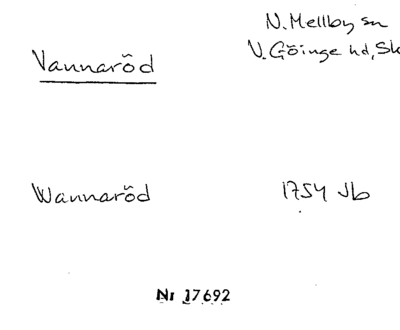 N. Mellby sn
Vannaröd
V. Göinge hd, Sk
Wannaröd
1754 Jb
Nr 17692